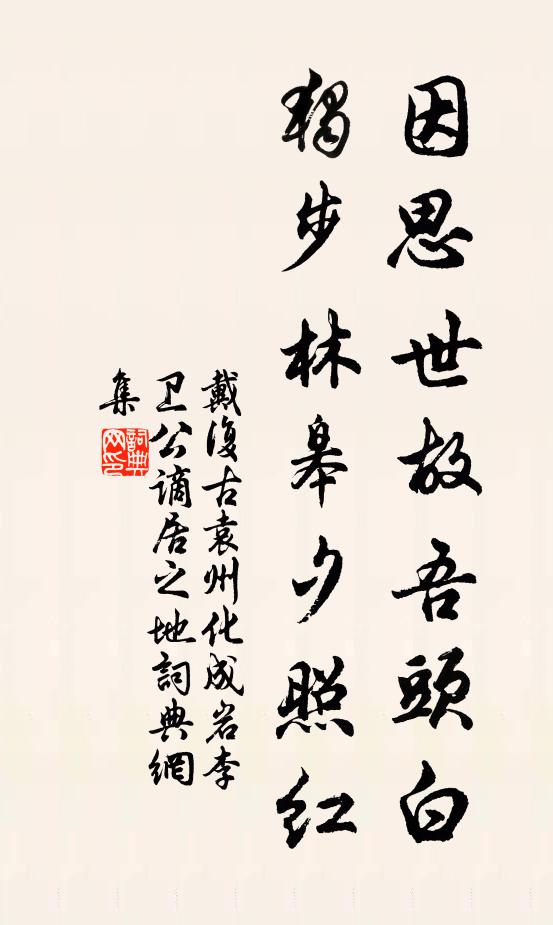 因思世故吾頭白
獨步林皋夕照紅
戴復古袁州化成岩李
卫公謫居之地詞典網
集
詞典
网印